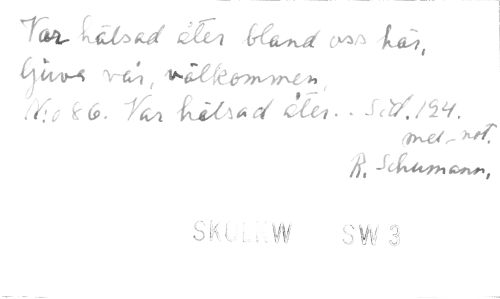 Var hälsad åter bland oss här,
ljuva vår, välkommen,
N:o 86. Var hälsad åter... Sid. 194.
med not.
R. Schumann.
SW 3